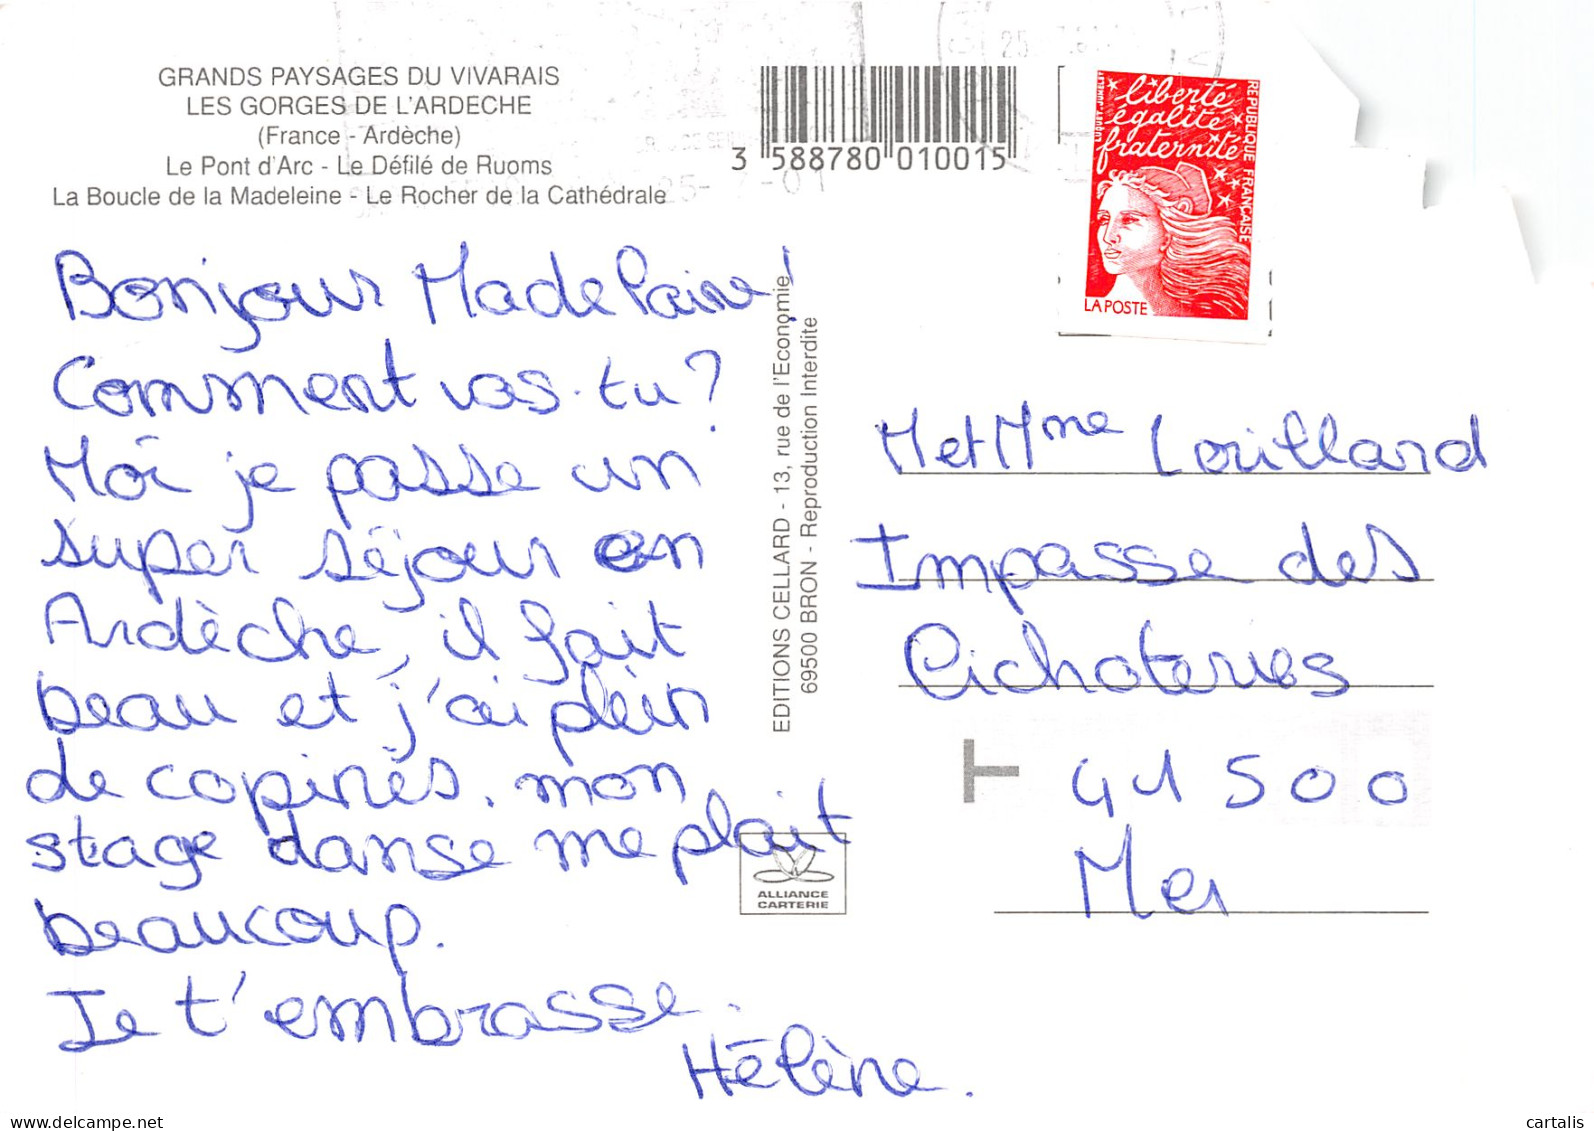 GRANDS PAYSAGES DU VIVARAIS
LES GORGES DE L'ARDECHE
(France - Ardèche)
Le Pont d'Arc - Le Défilé de Ruoms
La Boucle de la Madeleine - Le Rocher de la Cathédrale
3 588780 010015
25-7-01
liberté
égalité
fraternité
REPUBLIQUE FRANÇAISE
LA POSTE
Bonjour Madelaine!
Comment vas-tu?
Moi je passe un
super séjour en
Ardèche, il fait
beau et j'ai plein
de copines. mon
stage danse me plait
beaucoup.
Je t'embrasse.
Hélène.
EDITIONS CELLARD - 13, rue de l'Economie
69500 BRON - Reproduction Interdite
ALLIANCE
CARTERIE
M et Mme Lorillard
Impasse des
Cichoteries
41500
Mer
www.delcampe.net
cartalis